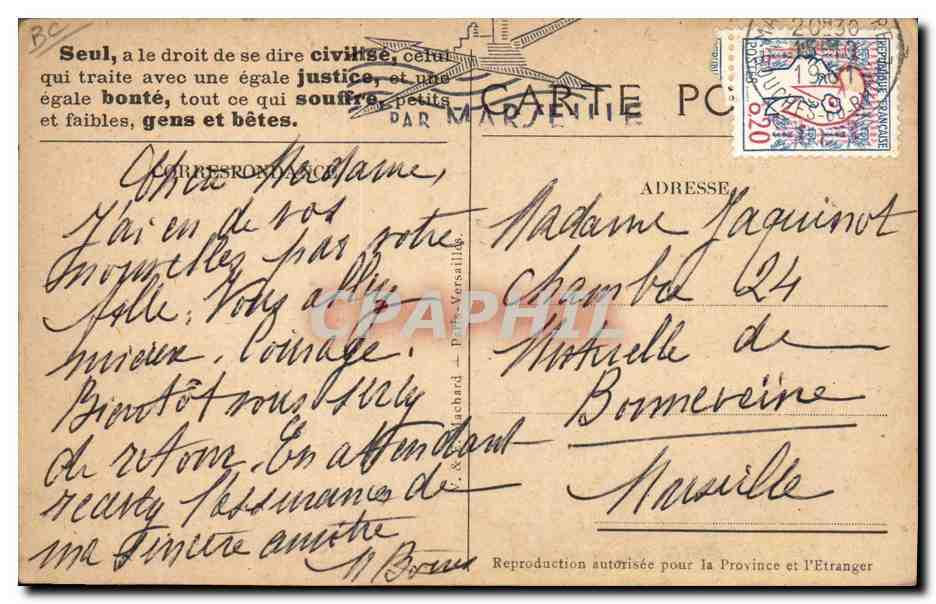 BC
Seul, a le droit de se dire civilisé, celui
qui traite avec une égale justice, et une
égale bonté, tout ce qui souffre, petits
et faibles, gens et bêtes.
PAR MARSEILLE
CARTE PO
20H30
19
BOUCHES-DU-R
RÉPUBLIQUE FRANÇAISE
POSTES
0,20
CORRESPONDANCE
Chère Madame,
J'ai eu de vos
nouvelles par votre
fille. Vous allez
mieux. Courage.
Bientôt vous serez
de retour. En attendant
recevez l'assurance de
ma sincère amitié
M
ADRESSE
Madame Jaquinot
Chambre 24
Mutuelle de
Bonneveine
Marseille
achard — Paris-Versailles
CPAPHIL
Reproduction autorisée pour la Province et l'Etranger